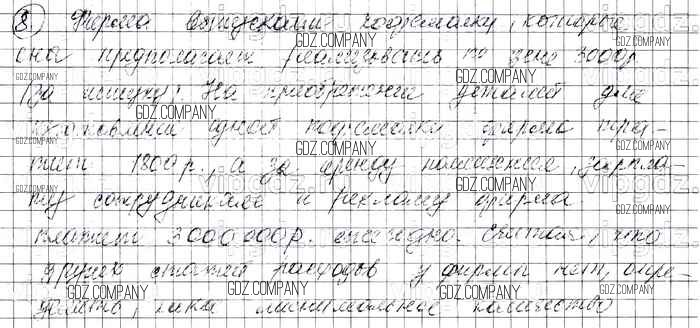 8. Фирма выпускает кофемолку, которые
она предполагает реализовать по цене 3000р
за штуку. На приобретение деталей для
изготовления одной кофемолки фирма
тит 1800р., а за аренду помещения, зарпла-
ту сотрудникам и рекламу фирма
платит 3000000р. ежегодно. Считая, что
других статей расходов у фирмы нет, опре-
какое минимальное количество
GDZ.COMPANY
vipgdz